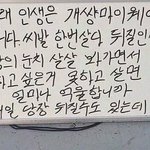 래 인생은 개쌍마이웨이
니다. 씨발 한번살다 뒤질인
남이 눈치 살살 봐가면서
하고 싶은거 못하고 살면
얼마나 억울합니까
내일 당장 뒤질수도 있는데